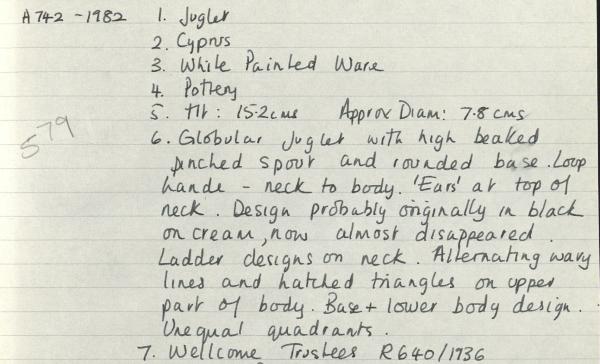 A742-1982 1. Juglet
2. Cyprus
3. White Painted Ware
4. Pottery
5. Ht: 15.2cms Approx Diam: 7.8 cms
579
6. Globular juglet with high beaked
pinched spout and rounded base. Loop
hande - neck to body. 'Ears' at top of
neck. Design probably originally in black
on cream, now almost disappeared.
Ladder designs on neck. Alternating wavy
lines and hatched triangles on upper
part of body. Base + lower body design.
Unequal quadrants.
7. Wellcome Trustees R640/1936